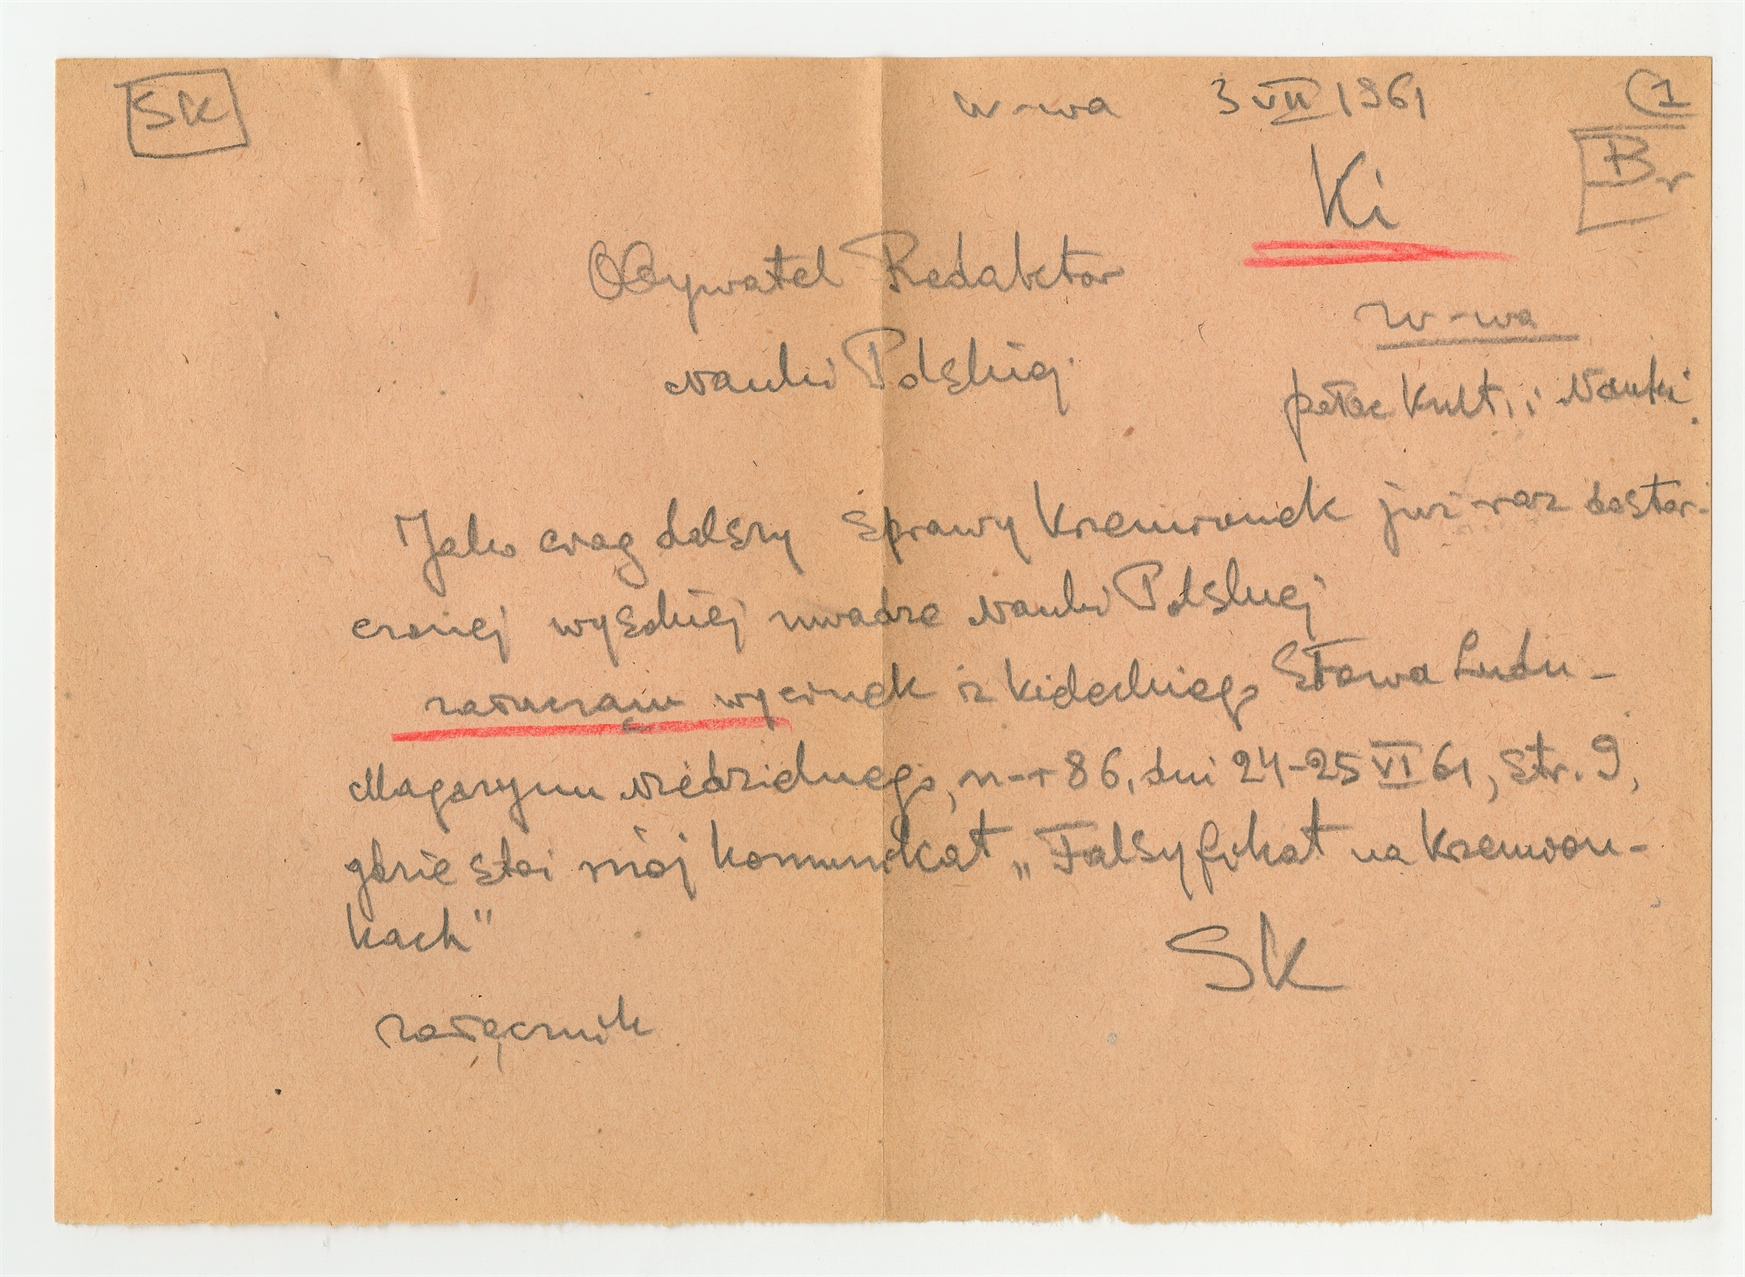 SK
W-wa 3 VII 1961
(1
Br
Ki
Obywatel Redaktor
Nauki Polskiej
W-wa
pałac Kult. i Nauki.
Jako ciąg dalszy sprawy Krzemionek już raz dostar-
czonej wysokiej uwadze Nauki Polskiej
załączam wycinek iz Kieleckiego Słowa Ludu -
Magazynu niedzielnego, n-r 86, dni 24-25 VI 61, str. 9,
gdzie stoi mój komunikat „Falsyfikat na Krzemion-
kach"
SK
załącznik